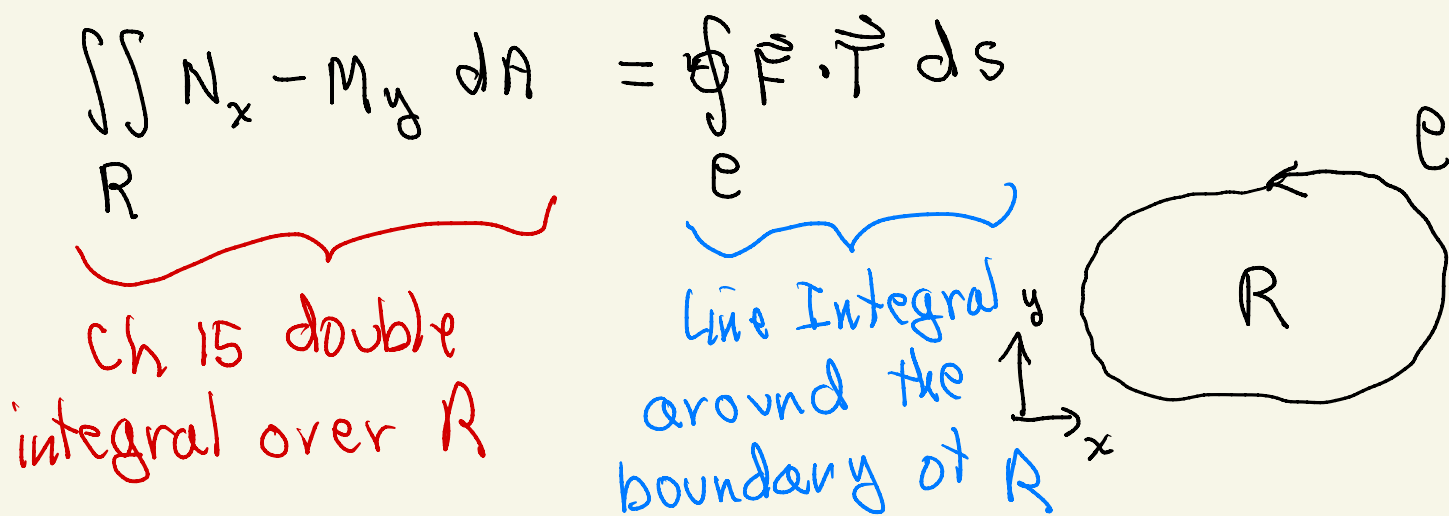 ∬ Nₓ - M_y dA = ∮ F⃗ · T⃗ ds
R
C
C
R
Ch 15 double
integral over R
Line Integral
around the
boundary of R
y
x